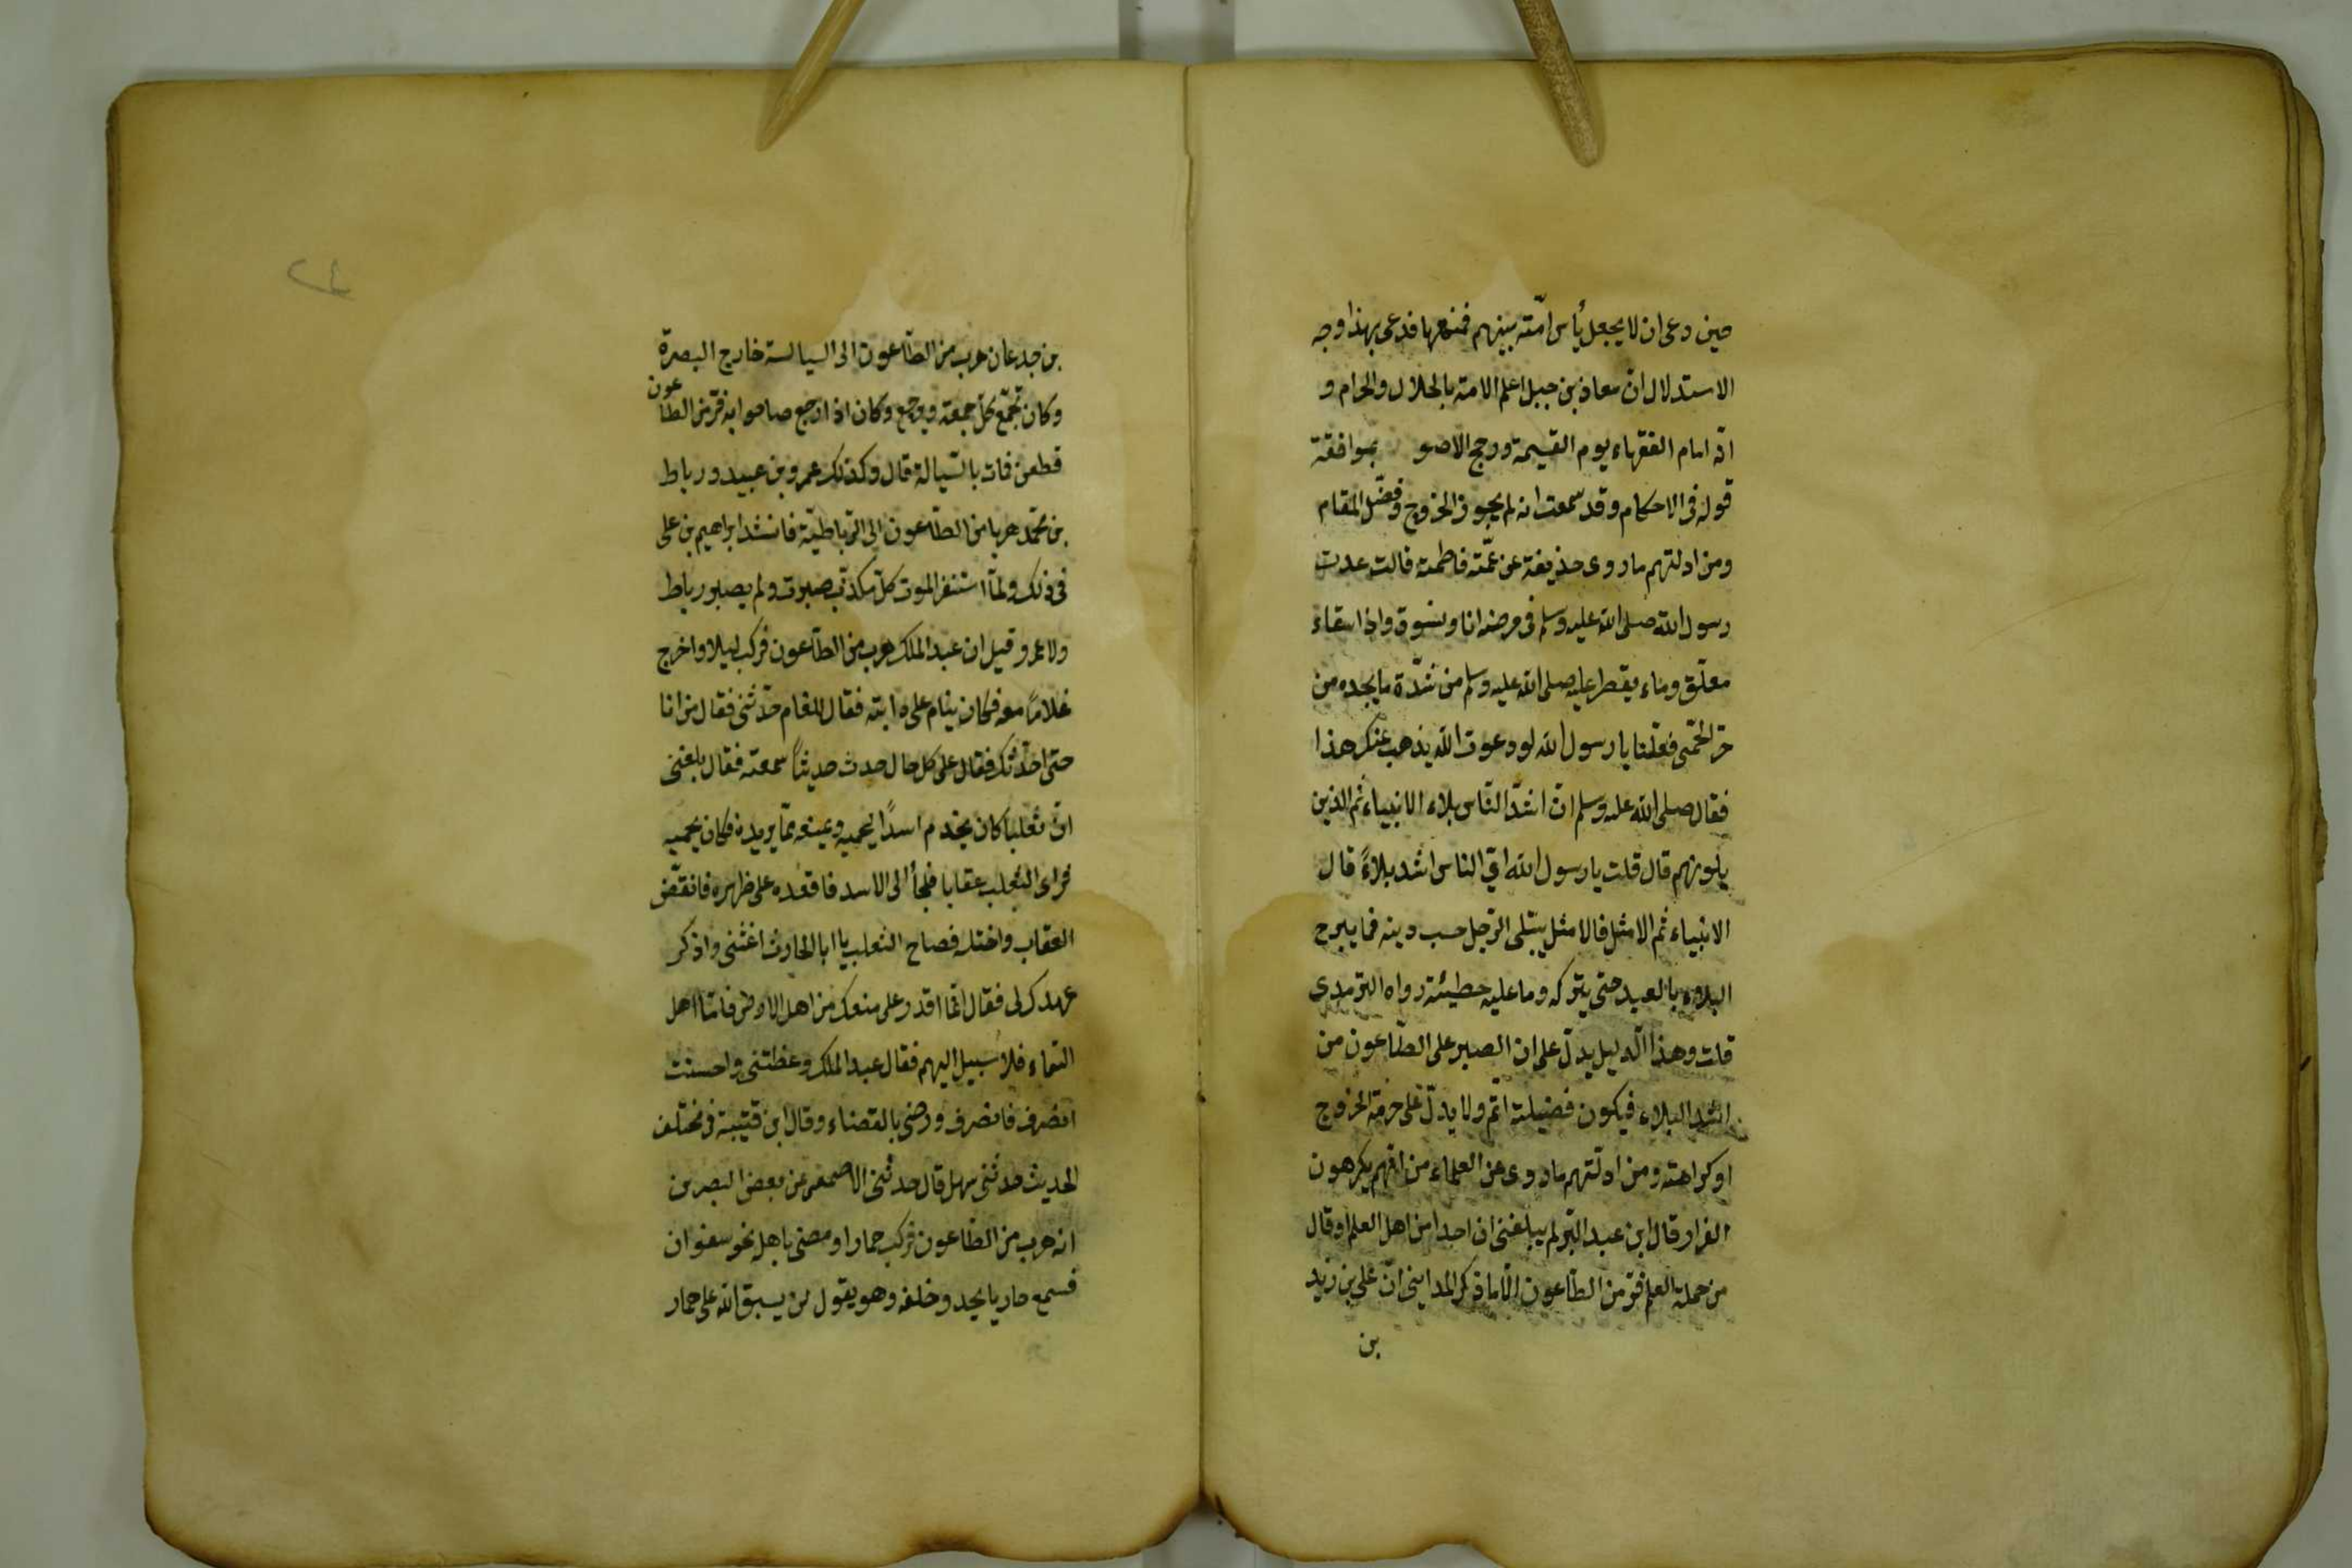 حين دعى ان لا يجعل بأس امّته بينهم فمنعها فدعى بهذا وجه
الاستدلال انّ معاذ بن جبل اعلم الامة بالحلال والحرام و
انّه امام الفقهاء يوم القيمة ورجح الاصو بموافقة
قوله فى الاحكام وقد سمعت انه لم يجوز الخروج وفضّل المقام
ومن ادلتهم ما روى حذيفة عن عمّته فاطمة قالت عدت
رسول الله صلى الله عليه وسلم فى مرضه انا ونسوة واذا سقاء
معلّق وماء يقطر عليه صلى الله عليه وسلم من شدّة ما يجده من
حرّ الحمّى فقلنا يا رسول الله لو دعوت الله يذهب عنك هذا
فقال صلى الله عليه وسلم انّ اشدّ النّاس بلاء الانبياء ثم الذين
يلونهم قال قلت يا رسول الله اىّ الناس اشد بلاءً قال
الانبياء ثم الامثل فالامثل يبتلى الرّجل حسب دينه فما يبرح
البلاء بالعبد حتى يتركه وما عليه خطيئة رواه الترمذى
قلت وهذا الدليل يدلّ على ان الصبر على الطّاعون من
اشد البلاء فيكون فضيلته اتم ولا يدلّ على حرمة الخروج
او كراهته ومن ادلّتهم ما روى عن العلماء من انّهم يكرهون
الفرار وقال ابن عبد البّر لم يبلغنى ان احدا من اهل العلم او قال
من حملة العلم فرّ من الطّاعون الّا ما ذكر المداينى انّ على بن زيد
بن
بن جدعان هرب من الطّاعون الى السيالة خارج البصرة
وكان تجمّع كل جمعة ويرجع وكان اذا رجع صاحوا به فرّ من الطاعون
فطعن فمات بالسّيالة قال وكذلك عمرو بن عبيد ورباط
بن محمّد هربا من الطّاعون الى الرّباطيّة فانشد ابراهيم بن على
فى ذلك ولمّا استنفز الموت كلّ مكذّب صبرت ولم يصبر رباط
ولا عمرو وقيل ان عبد الملك هرب من الطّاعون فركب ليلا واخرج
غلامًا معه فكان ينام على دابته فقال للغلام حدّثنى فقال من انا
حتى احدّثك فقال على كل حال حدث حديثاً سمعته فقال بلغنى
انّ ثعلبا كان يخدم اسدًا ليحميه ويمنعه ممّا يريده فكان يحميه
فراى الثعلب عقابا فلجأ الى الاسد فاقعده على ظهره فانقضّ
العقاب واختله فصاح الثعلب يا ابا الحارث اغثنى واذكر
عهدك لى فقال انّما اقدر على منعك من اهل الارض فامّا اهل
السّماء فلا سبيل اليهم فقال عبد الملك وعظتنى واحسنت
انصرف فانصرف ورضى بالقضاء وقال ابن قتيبة فى مختلف
الحديث حدثنى سهل قال حدثنى الاصمعى عن بعض البصرين
انه هرب من الطّاعون فركب حمارا ومضى باهله نحو سفوان
فسمع حاديا يحدو خلفه وهو يقول لن يسبق الله على حمار